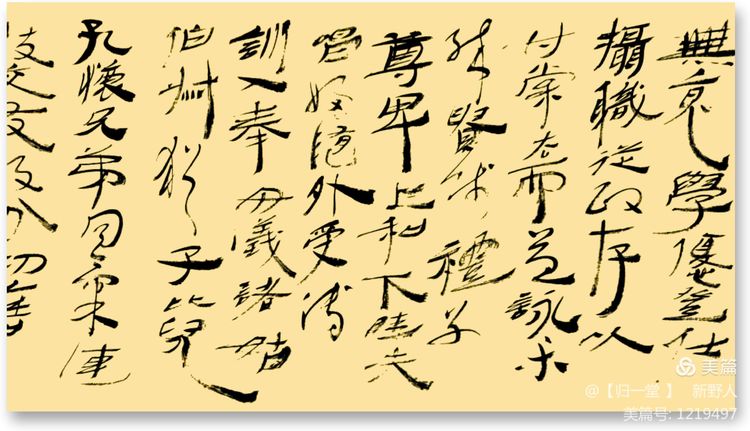 無竟學優登仕
攝職從政存以
甘棠去而益詠樂
殊貴賤禮別
尊卑上和下睦夫
唱婦隨外受傅
訓入奉母儀諸姑
伯叔猶子比兒
孔懷兄弟同氣連
枝交友投分切
美篇
@【归一堂 】 新野人
美篇号: 1219497